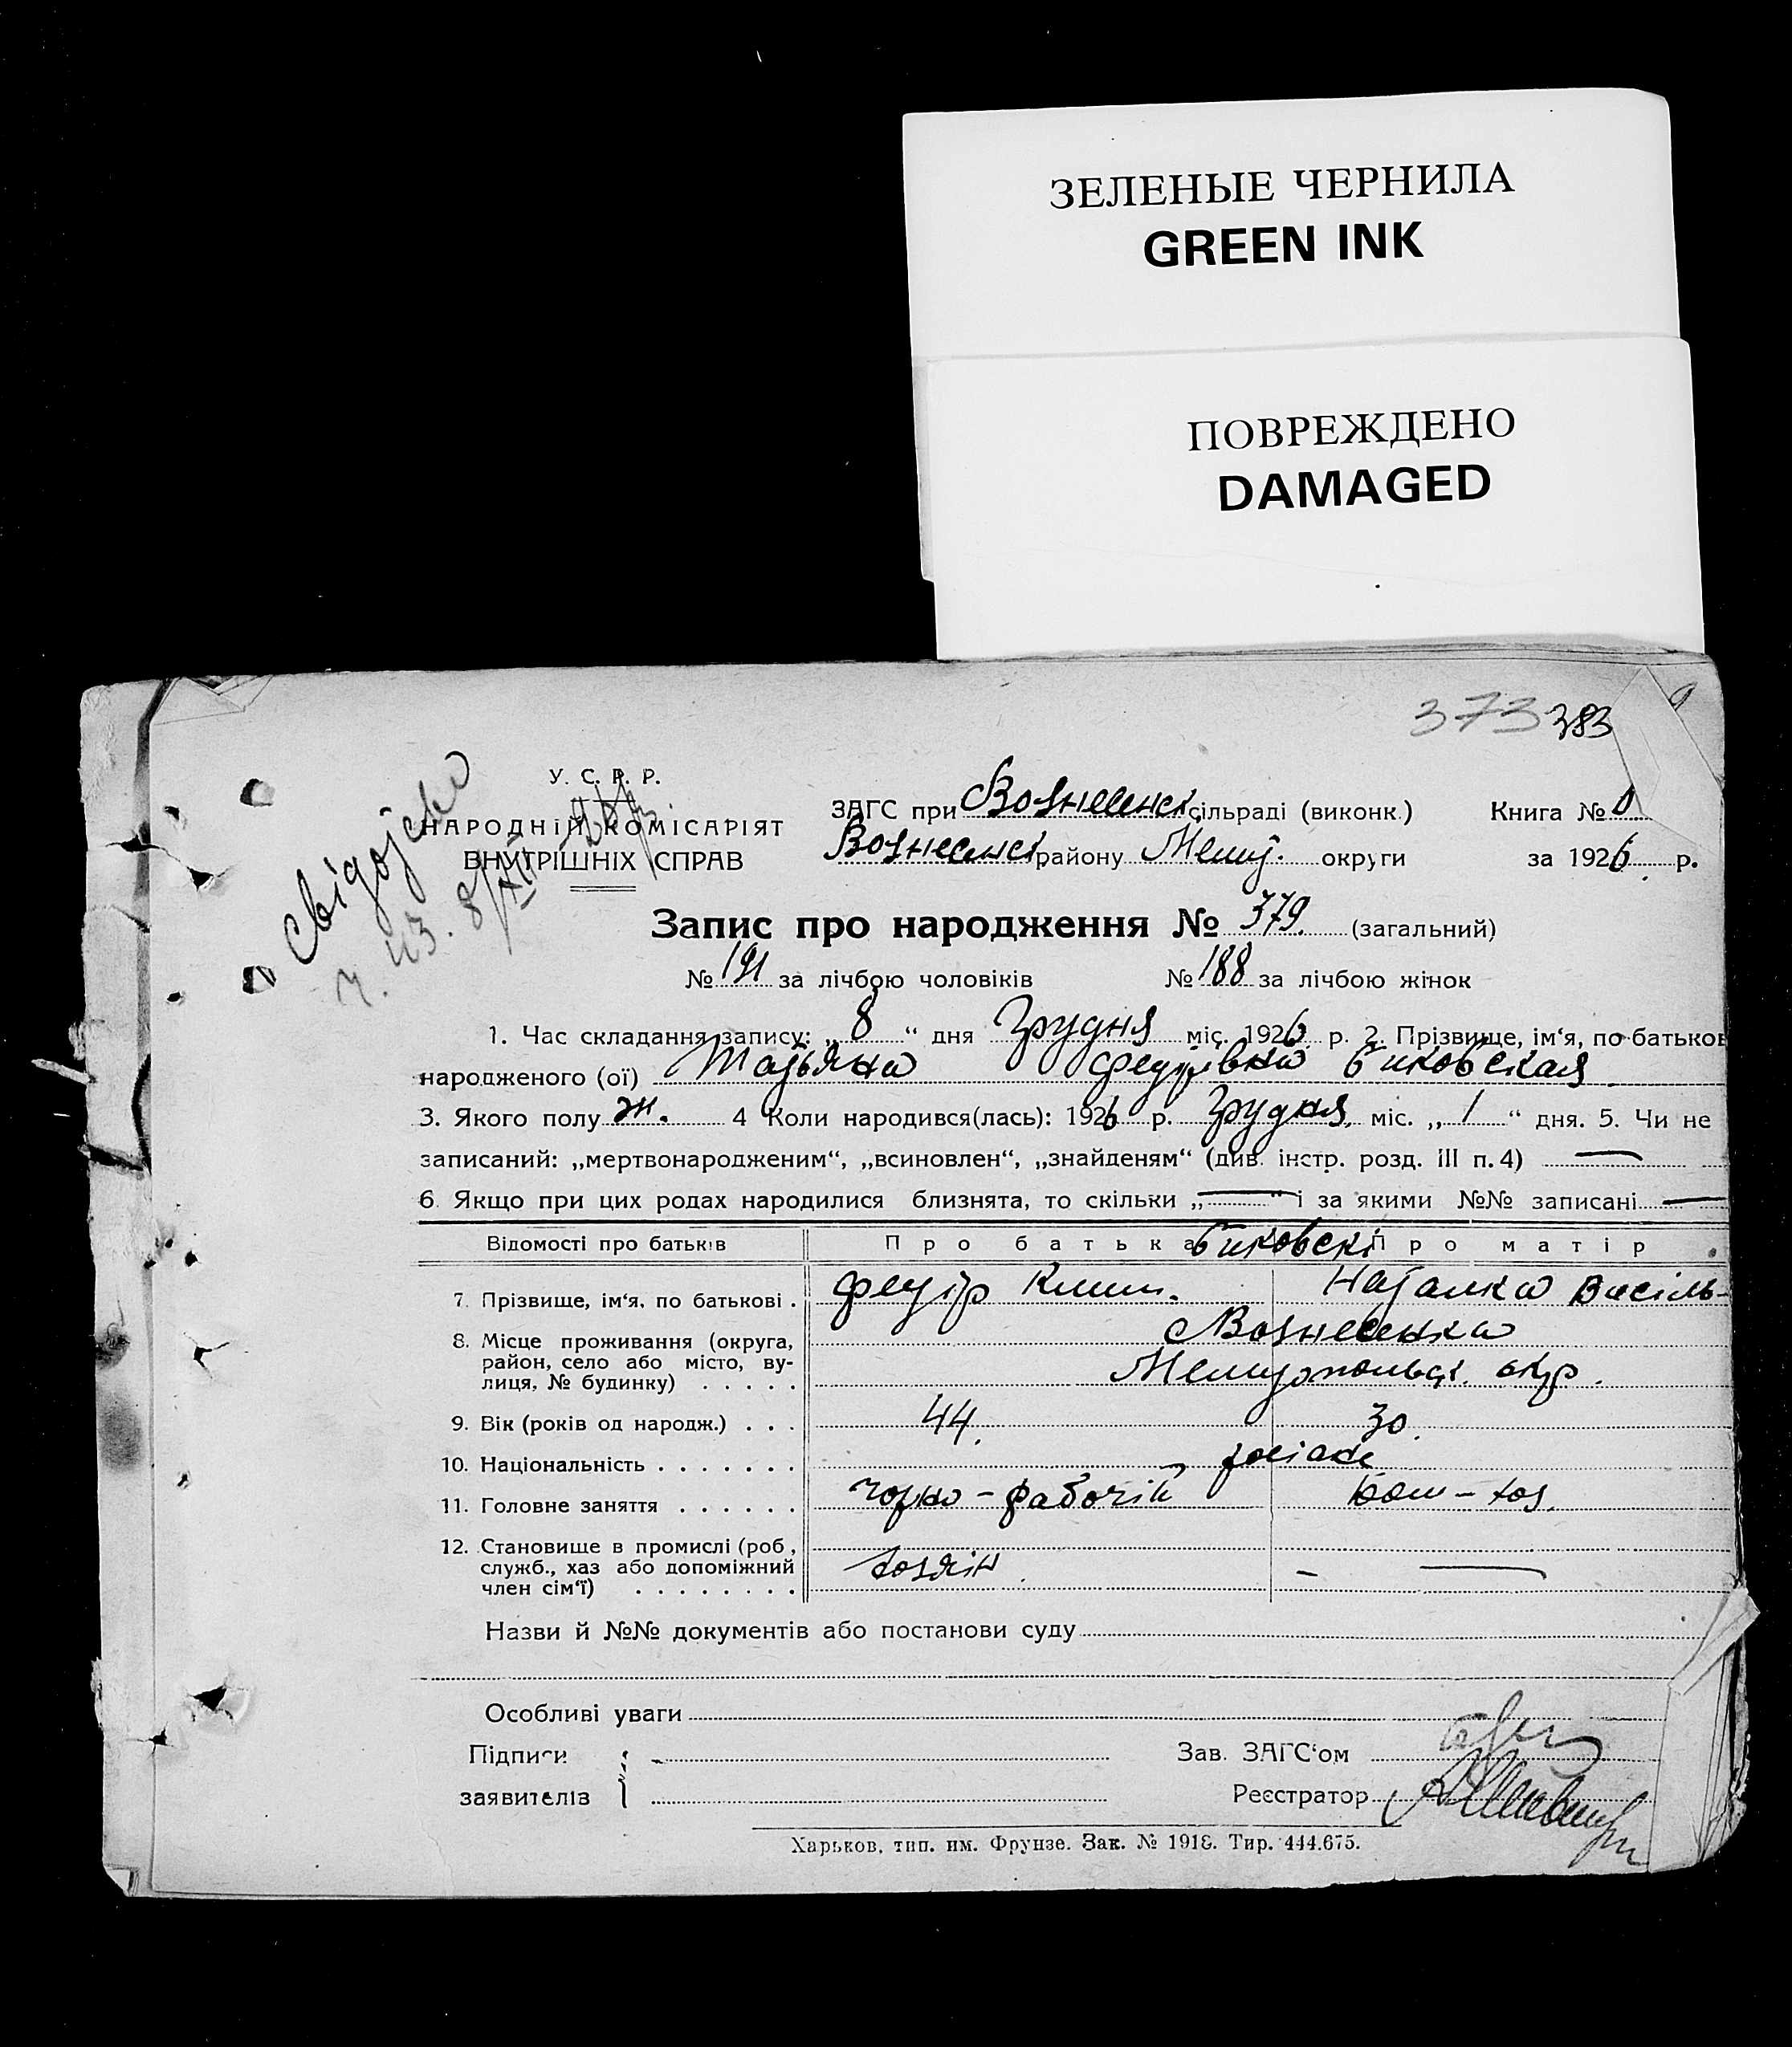 ЗЕЛЕНЫЕ ЧЕРНИЛА
GREEN INK
ПОВРЕЖДЕНО
DAMAGED
373 383
У. С. Р. Р.
НАРОДНІЙ КОМІСАРІЯТ
ВНУТРІШНІХ СПРАВ
ч. из. 8/XII 26 р.
ЗАГС при Вознесенск. сільраді (виконк.) Книга №
Вознесенск району Мелит. округи за 1926 р.
Запис про народження № 379. (загальний)
№ 191 за лічбою чоловіків № 188 за лічбою жінок
1. Час складання запису: „ 8 “ дня Грудня міс. 1926 р. 2. Прізвище, ім‘я, по батьков
народженого (ої) Татьяна Федорівна Биковская
3. Якого полу ж. 4 Коли народився(лась): 1926 р. Грудня міс. „ 1 “ дня. 5. Чи не
записаний: „мертвонародженим“, „всиновлен“, „знайденям“ (див. інстр. розд. III п. 4) —
6. Якщо при цих родах народилися близнята, то скільки „ — “ і за якими №№ записані —
Відомості про батьків Про батька Биковскі Про матір
7. Прізвище, ім‘я, по батькові . Федір Клим. Наталка Васіль-
8. Місце проживання (округа, Вознесенка
район, село або місто, ву-
лиця, № будинку) . . . . . Мелитопольск. окр.
9. Вік (років од народж.) . . . 44. 30.
10. Національність . . . . . . .
11. Головне заняття . . . . . . чорно-рабочій дом-хоз.
12. Становище в промислі (роб,
служб., хаз або допоміжний хозяін — —
член сім‘ї) . . . . . . . .
Назви й №№ документів або постанови суду
Особливі уваги
Підписи Зав. ЗАГС‘ом
заявителів Реєстратор
Харьков, тип. им. Фрунзе. Зак. № 1918. Тир. 444.675.